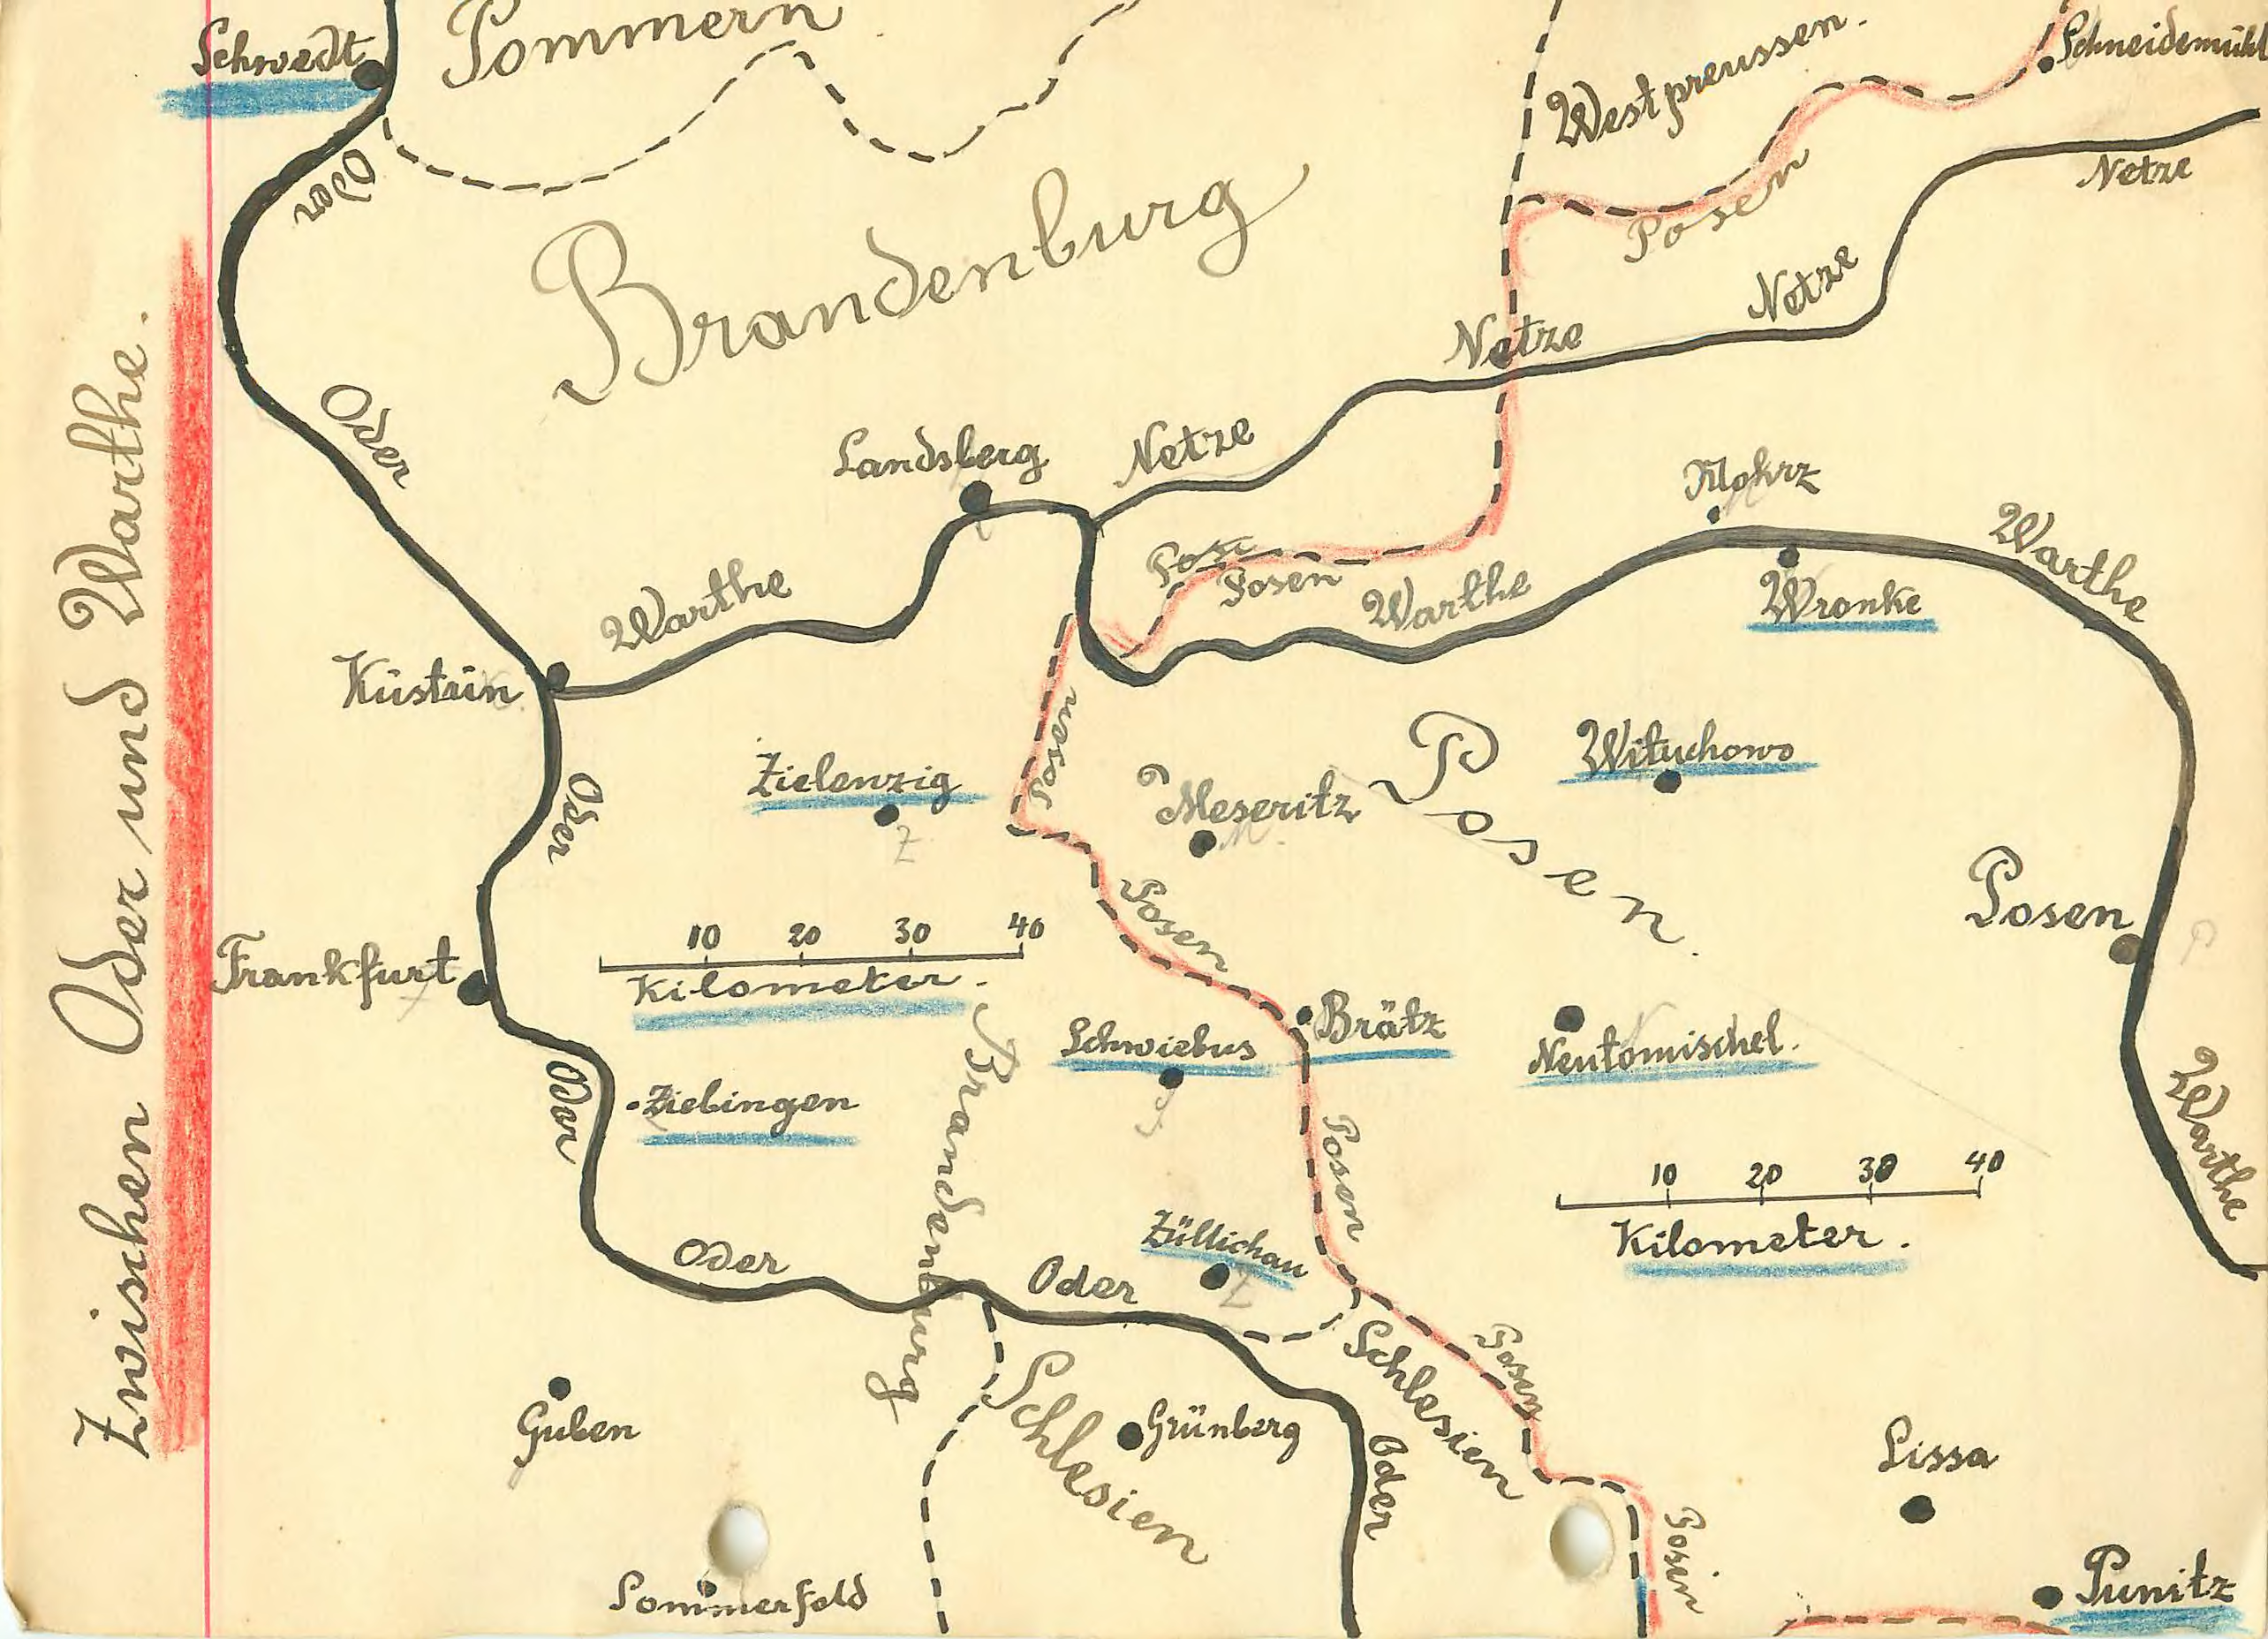 Zwischen Oder und Warthe.
Schwedt
Pommern
Westpreussen.
Schneidemühl
Oder
Posen
Netze
Brandenburg
Netze
Netze
Oder
Landsberg
Netze
Mokrz
Warthe
Posen
Warthe
Warthe
Wronke
Küstrin
Posen
Zielenzig
Z
Meseritz
M.
Posen.
Wituchowo
Oder
Posen
10 20 30 40
Kilometer.
Posen
P
Frankfurt
Brätz
Neutomischel.
Schwiebus
Oder
Ziebingen
Brandenburg
Posen
Warthe
10 20 30 40
Kilometer.
Züllichau
Z
Oder
Oder
Schlesien
Posen
Guben
Schlesien
Grünberg
Oder
Lissa
Posen
Sommerfeld
Punitz